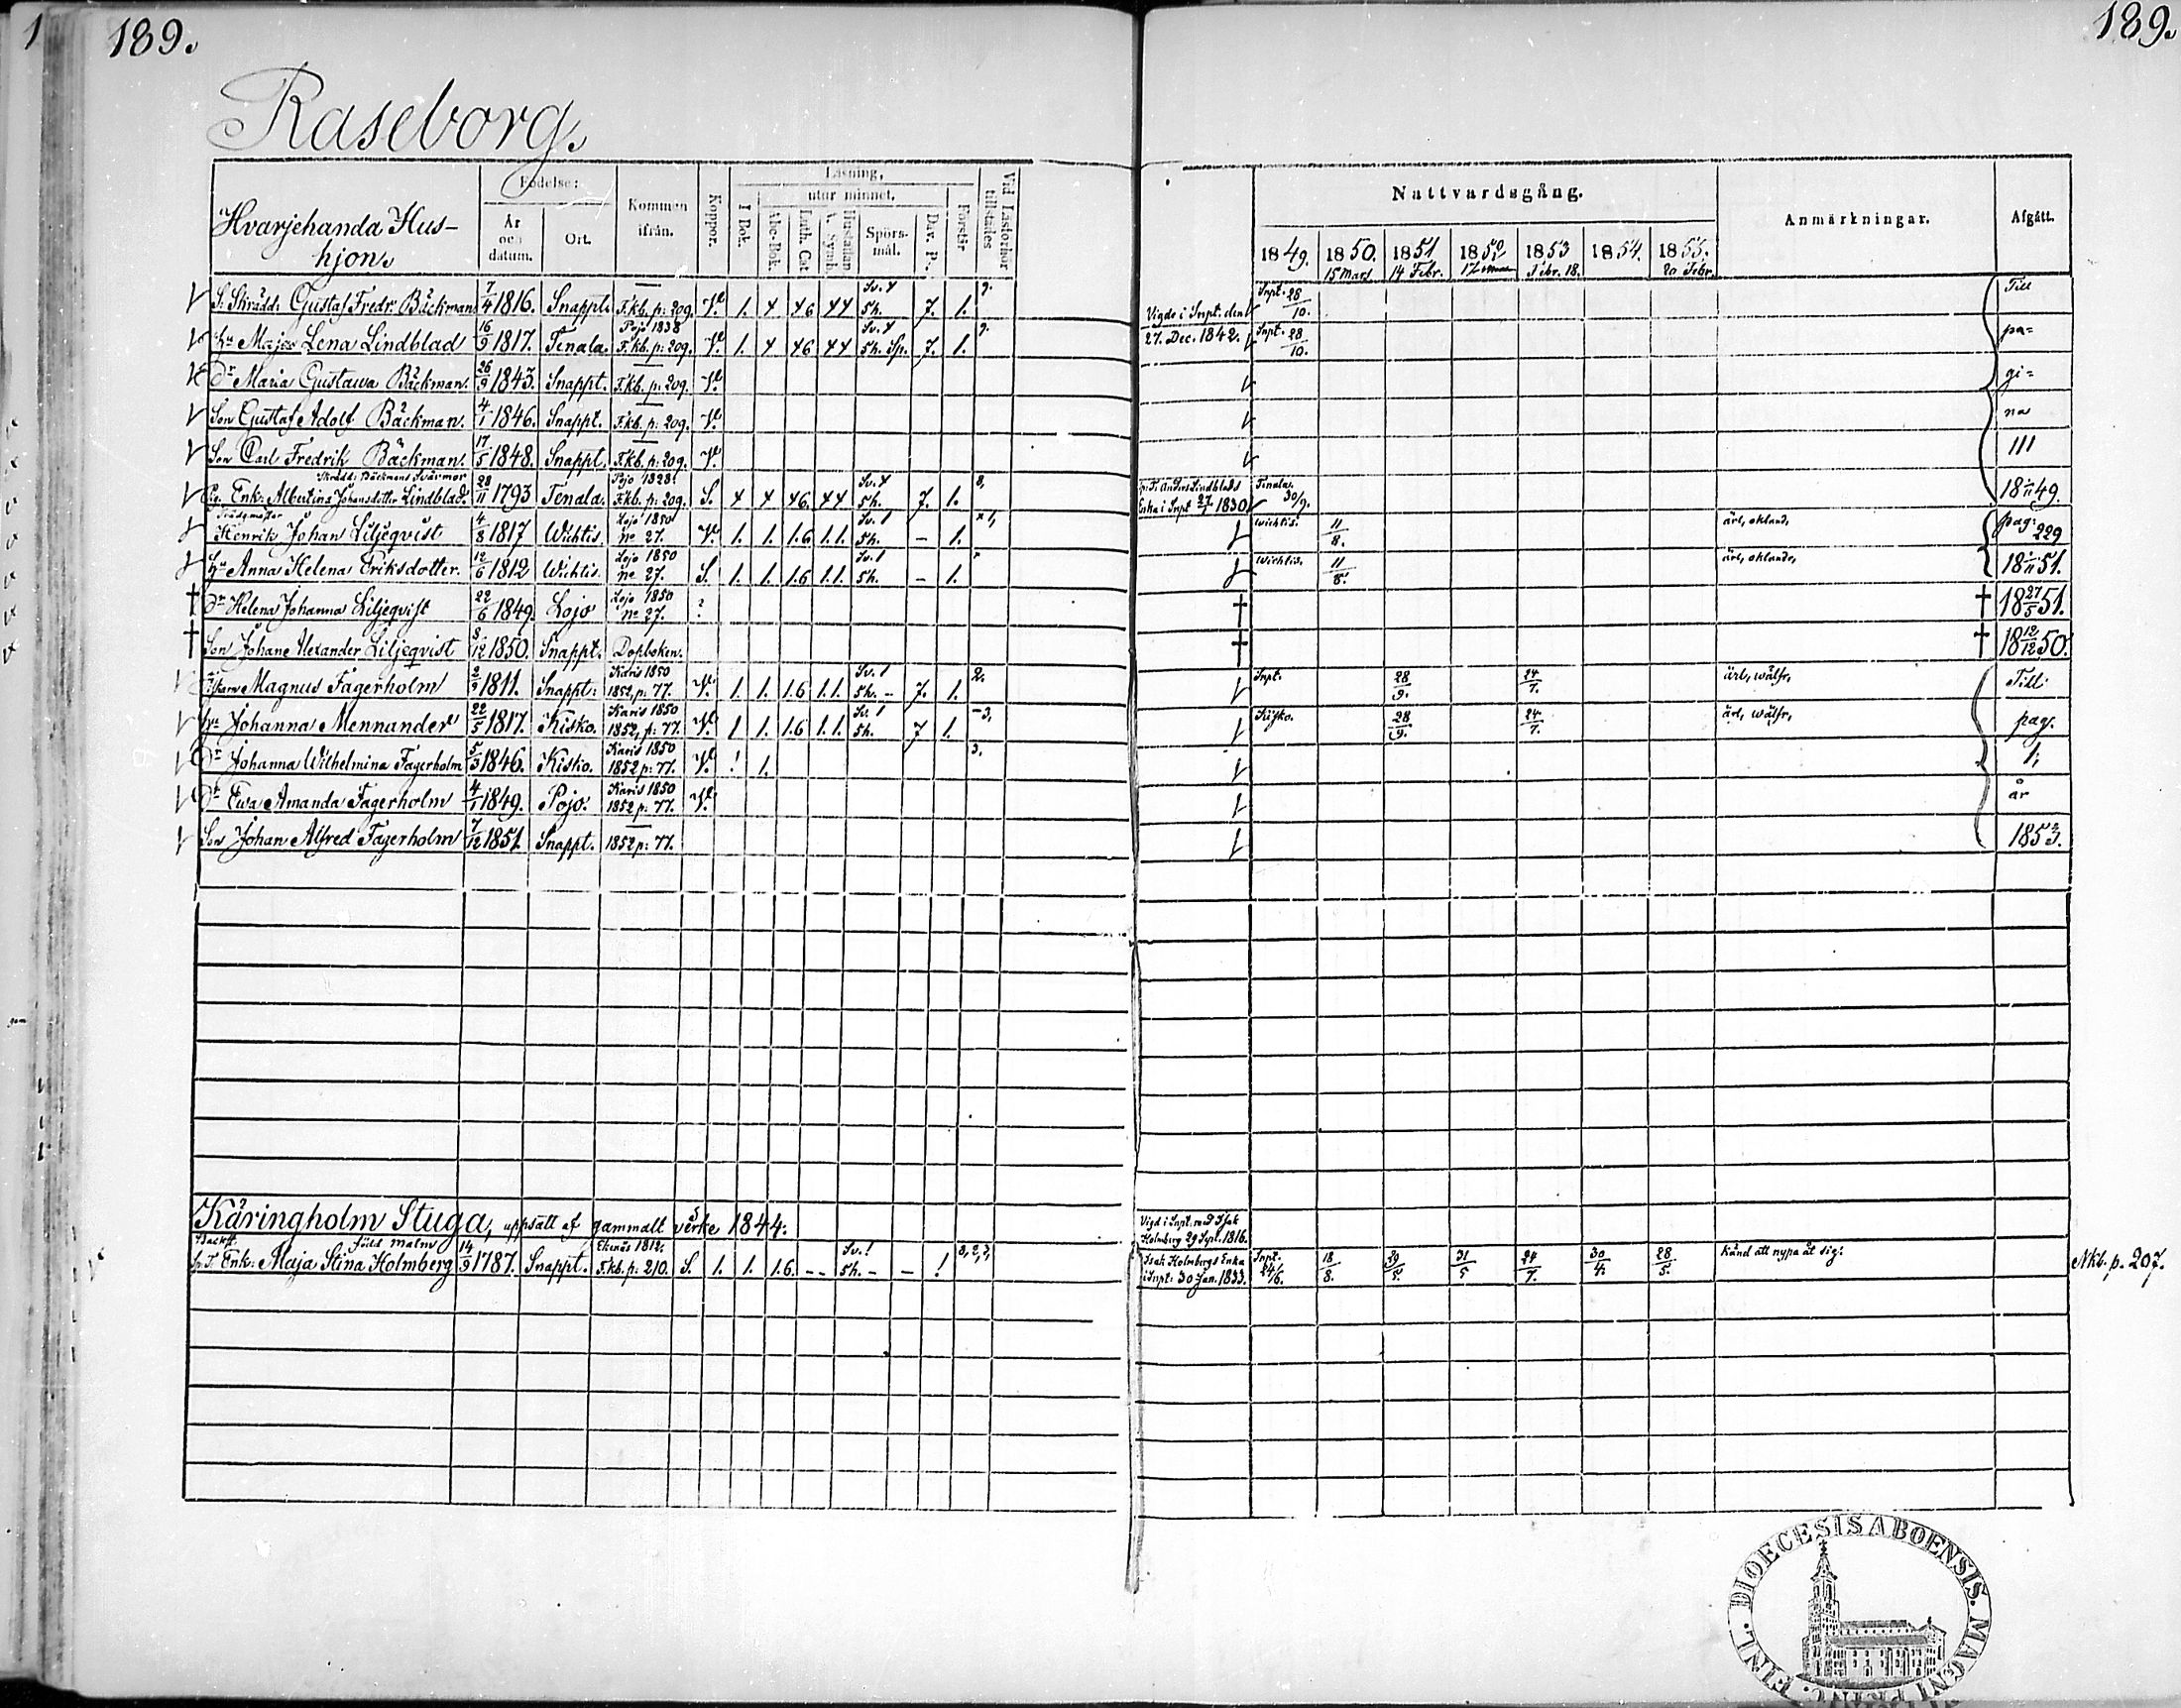 189.
189.
Raseborg.
Hvarjehanda Hus-
hjon.
Födelse:
År och datum.
Ort.
Kommen ifrån.
Koppor.
Läsning,
utur minnet.
I Bok.
Abc-Bok.
Luth. Cat.
Hustaflan A. Symb.
Spörs-mål.
Dav. P.
Förstår
Vid Läsförhör tillstädes
Nattvardsgång.
1849. 1850. 1851 1853 1854. 1855.
15 Mars 14 Febr. Febr. 18. 20 Febr.
Anmärkningar.
Afgått.
Gustaf Fredr. Bäckman 7/4 1816. Snappt. F.kb. p: 209. V. 1. 4 46 44 Sv. 4 5h. 7. 1. Vigde i Snpt. den Snpt. 28/10. Till
Maja Lena Lindblad 16/9 1817. Tenala. Pojo 1838 F.kb. p: 209. V. 1. 4 46 44 Sv. 4 5h. Sp. 7. 1. 27. Dec. 1842. Snpt. 28/10. pa=
Dr Maria Gustawa Bäckman. 26/9 1843. Snappt. F.kb. p: 209. V. gi=
Son Gustaf Adolf Bäckman. 4/1 1846. Snappt. F.kb. p: 209. V. na
Son Carl Fredrik Bäckman. 17/5 1848. Snappt. F.kb. p: 209. V. 111
Skrädd: Bäckmans Svärmor
Enk: Albertina Johansdotter Lindblad. 28/11 1793 Tenala. Pojo 1828. F.kb. p: 209. S. 4 4 46. 44 Sv. 4 5h. 7. 1. 8, Anders Lindblads Enka i Snpt 27/1 1830. Tenala. 30/9. 1849.
Henrik Johan Liljeqvist 4/8 1817 Wichtis. Lojo 1850 no 27. V. 1. 1. 1.6 1.1. Sv. 1 5h. - 1. Wichtis. 11/8. ärl, okland, pag: 229
Anna Helena Eriksdotter. 12/6 1812 Wichtis. Lojo 1850 no 27. S. 1. 1. 1.6 1.1. Sv. 1 5h. - 1. Wichtis. 11/8. ärl, oklande, 1851.
† Dr Helena Johanna Liljeqvist 22/6 1849. Lojo Lojo 1850 no 27. ? † † 18 27/5 51.
† Son Johan Alexander Liljeqvist 8/12 1850. Snappt. Dopboken. † † 18 12/12 50.
Magnus Fagerholm 2/9 1811. Snappt: Karis 1850 1852, p: 77. V. 1. 1. 1.6 1.1. Sv. 1 5h. - 7. 1. 2. Snpt. 28/9. 24/7. ärl, wälfr, Till
Johanna Mennander 22/5 1817. Kisko. Karis 1850 1852, p: 77. V. 1 1. 1.6 1.1. Sv. 1 5h. 7 1. - 3, Kisko. 28/9. 24/7. ärl, wälfr, pag.
Dr Johanna Wilhelmina Fagerholm 5/3 1846. Kisko. Karis 1850 1852 p: 77. V. ! 1. 3. 1;
Dr Ewa Amanda Fagerholm 4/1 1849. Pojo. Karis 1850 1852 p: 77. V. år
Son Johan Alfred Fagerholm 7/12 1851. Snappt. 1852 p: 77. 1853.
Käringholm Stuga, uppsatt af gammalt verke 1844.
Vigd i Snpt. med Isak
Holmberg 29 Sept. 1816.
Backst. född Malm
Enk: Maja Stina Holmberg 14/9 1787. Snappt. Ekenäs 1812. F.kb. p: 210. S. 1. 1. 1.6. - - Sv. ! 5h. - - ! 8, 2, 3, Isak Holmbergs Enka i Snpt: 30 Jan. 1833. Snpt. 24/6. 18/8. 29/5. 31/5 24/7. 30/4. 28/5. känd att nypa åt sig. Nkb. p. 207.
FINL. DIOECESIS ABOENSIS. MAGNI PRINC.